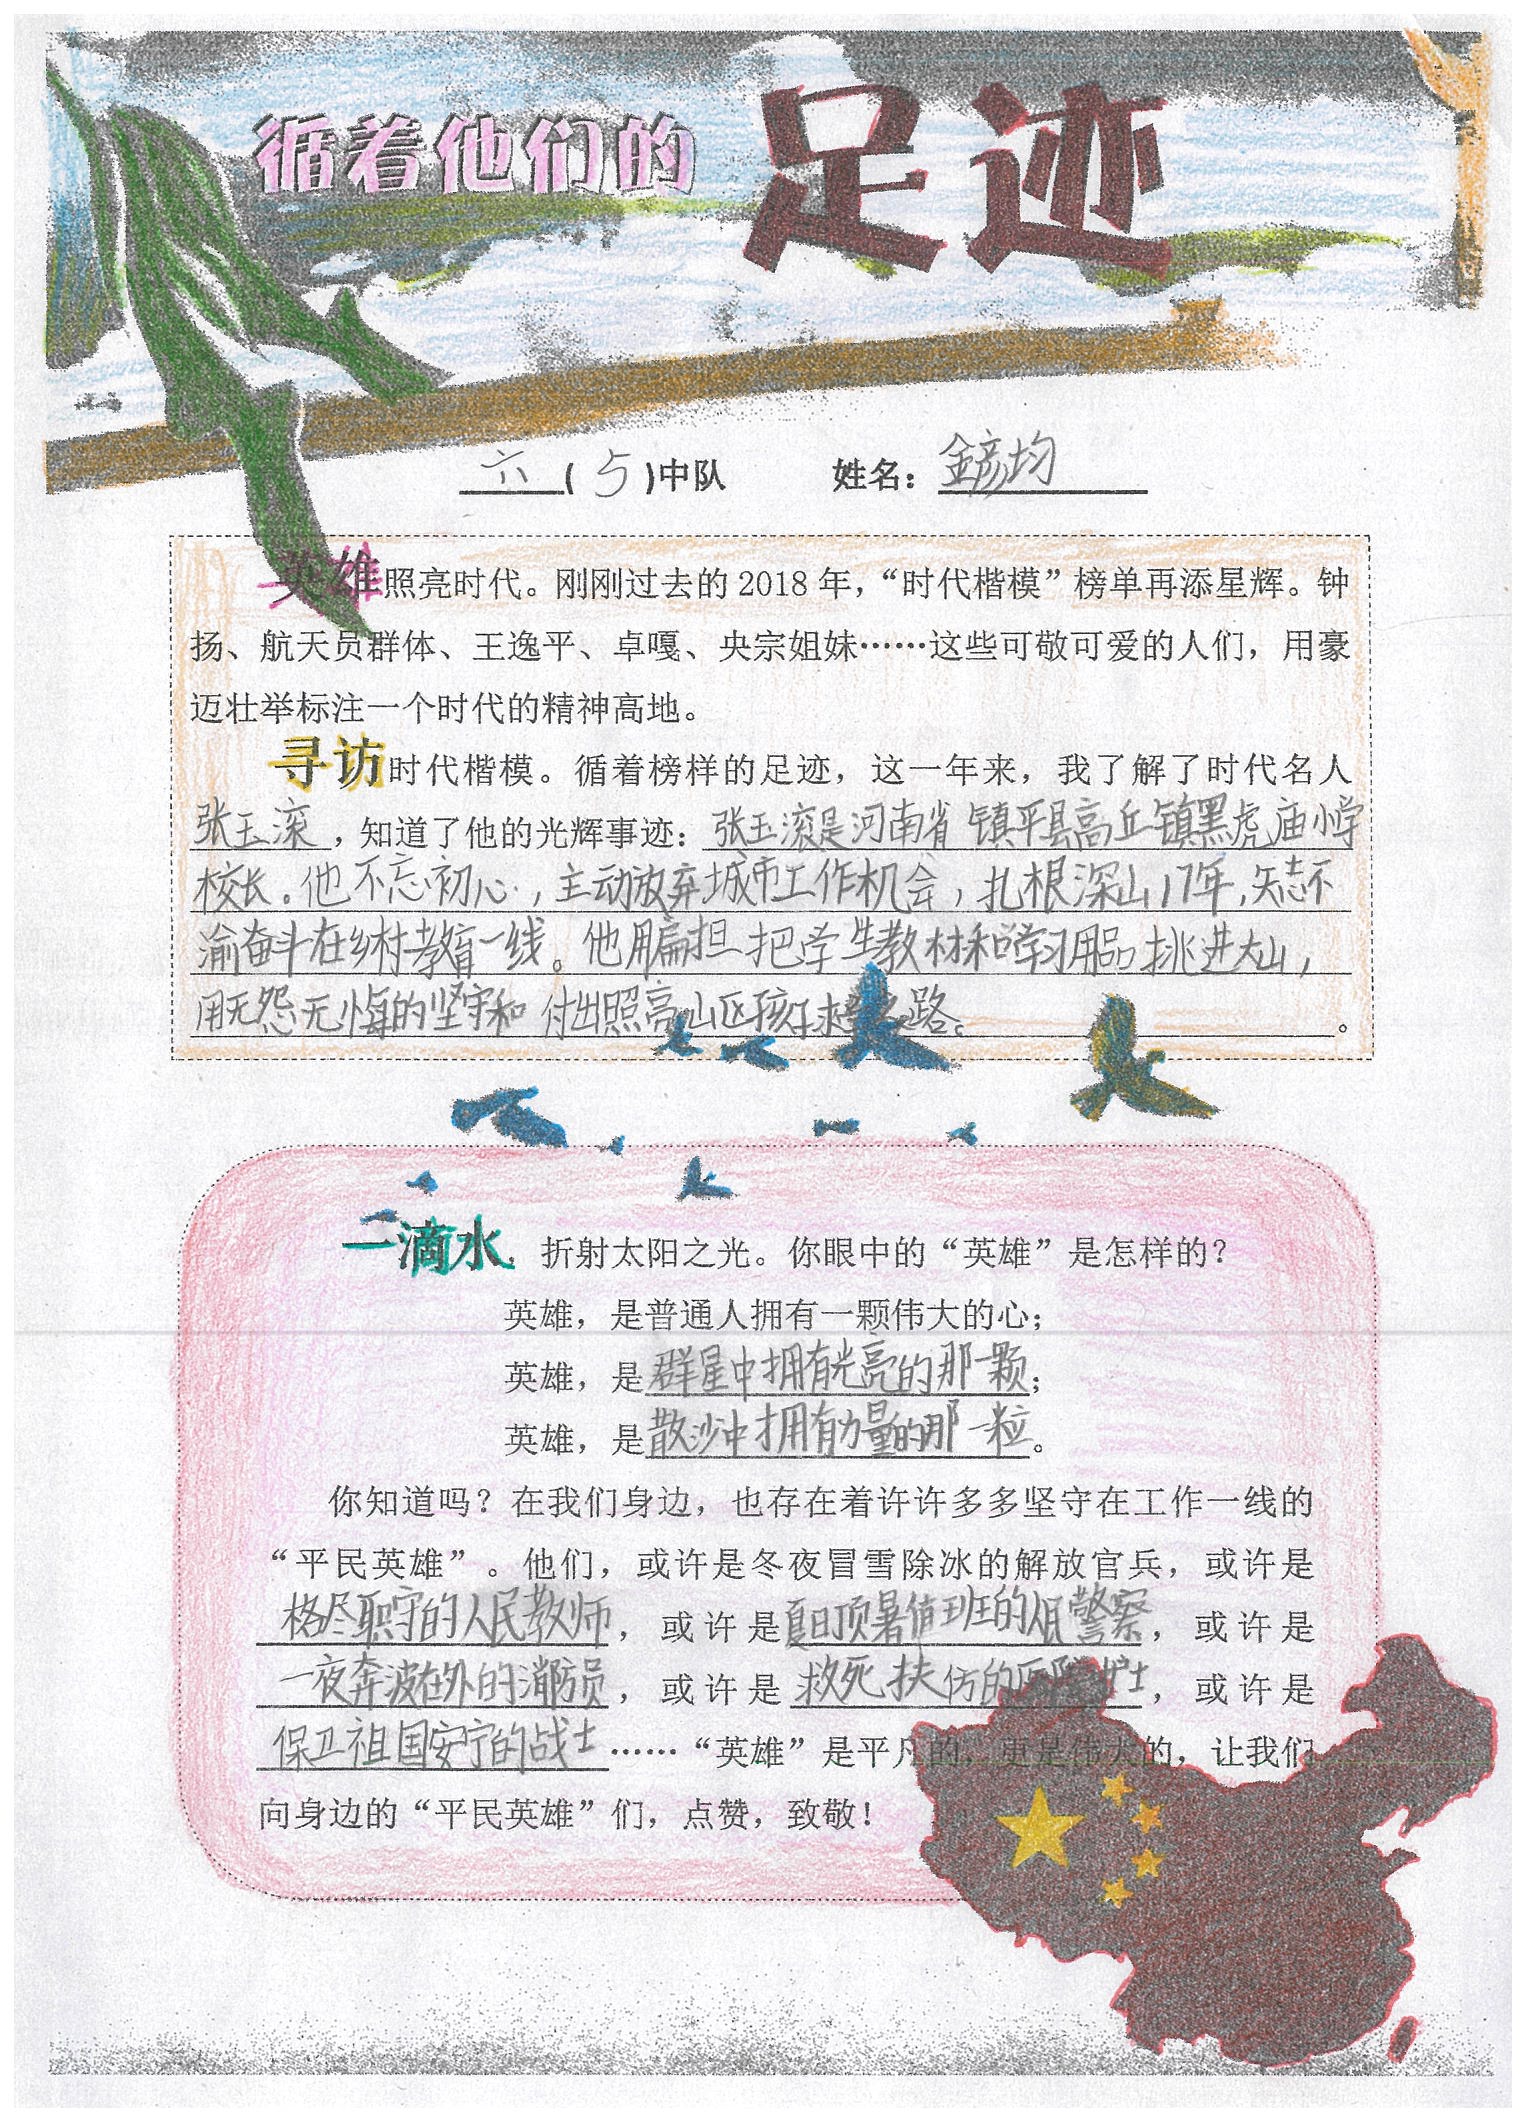 循着他们的 足迹
六(5)中队 姓名：金彦均
英雄照亮时代。刚刚过去的2018年，“时代楷模”榜单再添星辉。钟
扬、航天员群体、王逸平、卓嘎、央宗姐妹……这些可敬可爱的人们，用豪
迈壮举标注一个时代的精神高地。
寻访时代楷模。循着榜样的足迹，这一年来，我了解了时代名人
张玉滚，知道了他的光辉事迹：张玉滚是河南省镇平县高丘镇黑虎庙小学
校长。他不忘初心，主动放弃城市工作机会，扎根深山17年，矢志不
渝奋斗在乡村教育一线。他用扁担把学生教材和学习用品挑进大山，
用无怨无悔的坚守和付出照亮山区孩子求学之路。。
一滴水，折射太阳之光。你眼中的“英雄”是怎样的？
英雄，是普通人拥有一颗伟大的心；
英雄，是群星中拥有光亮的那一颗；
英雄，是散沙中拥有力量的那一粒。
你知道吗？在我们身边，也存在着许许多多坚守在工作一线的
“平民英雄”。他们，或许是冬夜冒雪除冰的解放官兵，或许是
格尽职守的人民教师，或许是夏日顶暑值班的人民警察，或许是
一夜奔波在外的消防员，或许是救死扶伤的医院护士，或许是
保卫祖国安宁的战士……“英雄”是平凡的，更是伟大的，让我们
向身边的“平民英雄”们，点赞，致敬！